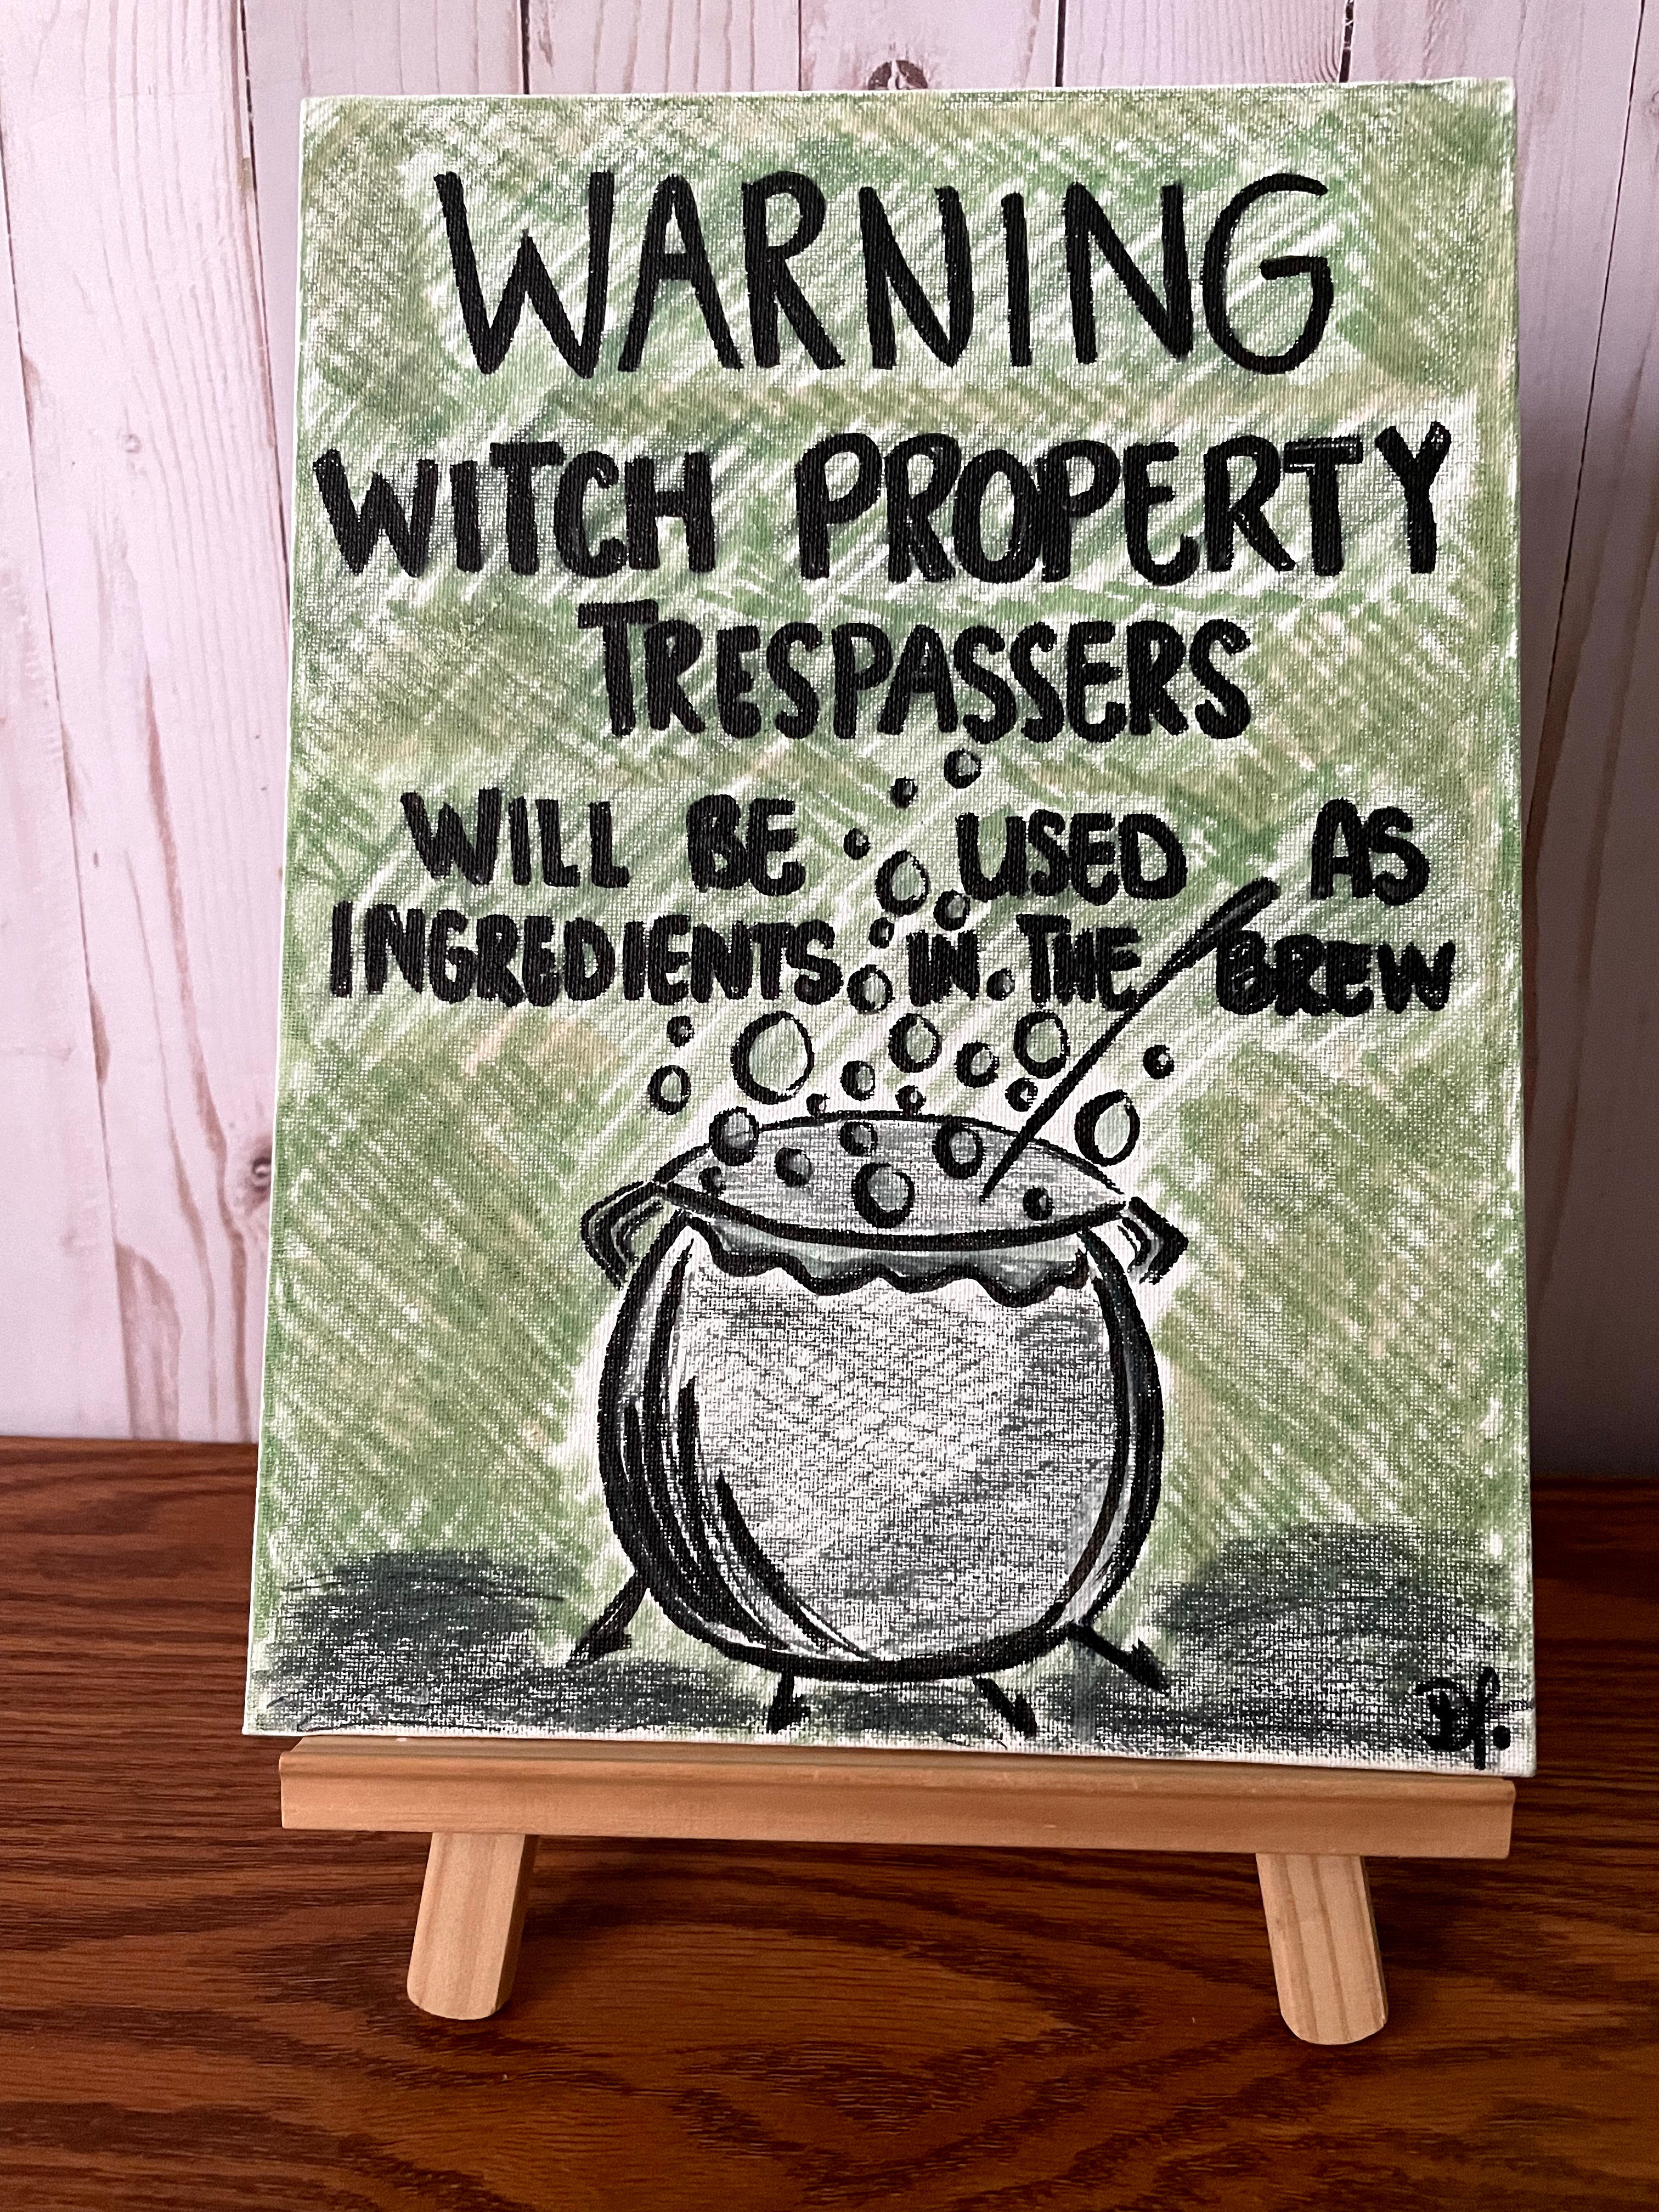 WARNING
WITCH PROPERTY
TRESPASSERS
WILL BE USED AS
INGREDIENTS IN THE BREW